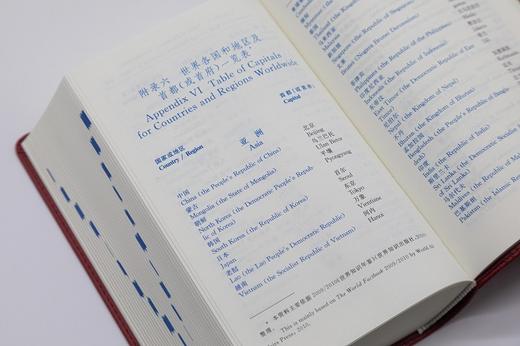 附录六 世界各国和地区及
首都(或首府)一览表
Appendix VI Table of Capitals
for Countries and Regions Worldwide
国家或地区
Country / Region
首都(或首府)
Capital
亚洲
Asia
中国
China (the People's Republic of China)
北京
Beijing
蒙古
Mongolia (the State of Mongolia)
乌兰巴托
Ulan Bator
朝鲜
North Korea (the Democratic People's Repub-
lic of Korea)
平壤
Pyongyang
韩国
South Korea (the Republic of Korea)
首尔
Seoul
日本
Japan
东京
Tokyo
老挝
Lao (the Lao People's Democratic Republic)
万象
Vientiane
越南
Vietnam (the Socialist Republic of Vietnam)
河内
Hanoi
* 本资料主要依据 2009/2010《世界知识年鉴》(世界知识出版社,
整理。 This is mainly based on The World Factbook 2009/2010 by World
Press, 2010.
Malaysia
文莱
Brunei (Negara Brunei Darussalam)
菲律宾
Philippines (the Republic of the Philippines)
印度尼西亚
Indonesia (the Republic of Indonesia)
东帝汶
East Timor (the Democratic Republic of East
Timor)
尼泊尔
Nepal (the Kingdom of Nepal)
不丹
Bhutan (the Kingdom of Bhutan)
孟加拉国
Bangladesh (the People's Republic of
印度
India (the Republic of India)
斯里兰卡
Sri Lanka (the Democratic Socialist
马尔代夫
Maldives (the Republic of Maldives)
巴基斯坦
Pakistan (the Islamic